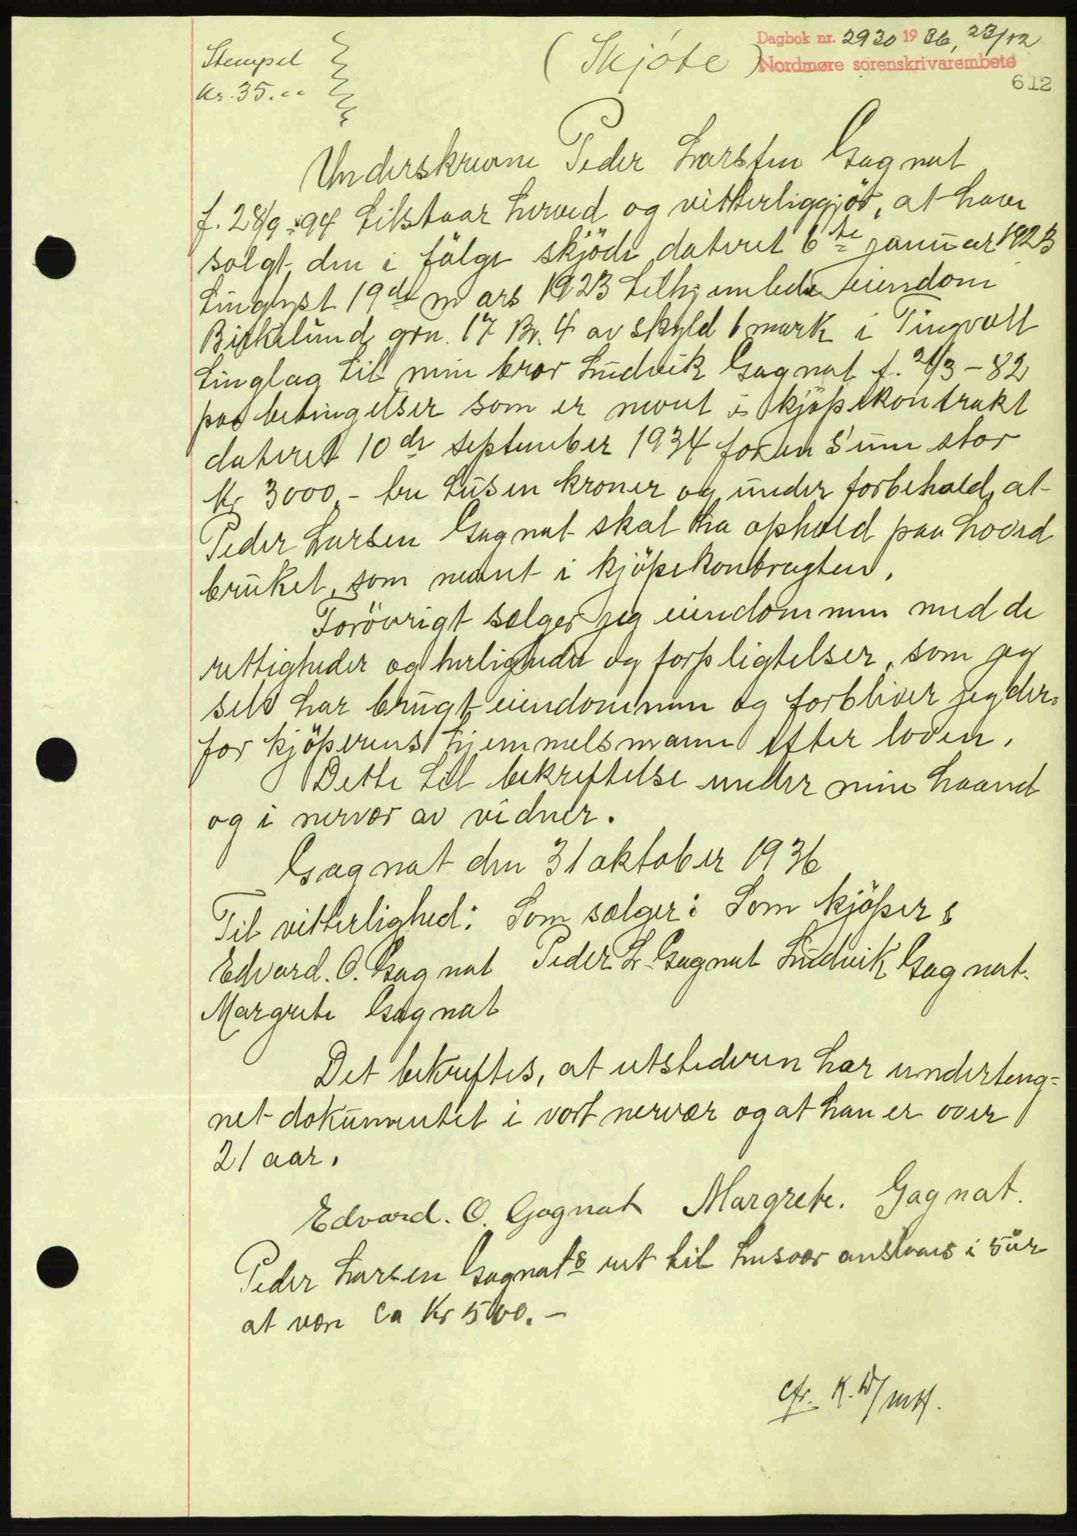 Dagbok nr. 2930 1936, 23/12
Nordmøre sorenskrivarembete
612
Stempel
Kr. 35.00
( Skjöte )
Underskrevne Peder Larsen Gagnat
f. 28/9-94 tilstaar herved og vitterliggjör, at have
solgt den i fölge skjöde dateret 6te januar 1923
tinglyst 19de mars 1923 tilhjemlede eiendom
Birkelund grn. 17 Br. 4 av skyld 1 mark i Tingvoll
tinglag til min bror Ludvik Gagnat f. /3-82
paa betingelser som er nevnt i kjöpekontrakt
dateret 10de september 1934 for en sum stor
Kr 3000,- tre tusen kroner og under forbehold, at
Peder Larsen Gagnat skal ha ophold paa hoved
bruket, som nevnt i kjöpekontragten.
Forövrigt sælger jeg eiendommen med de
rettigheder og herligheder og forpligtelser, som jeg
selv har brugt eiendommen og forbliver jeg der-
for kjöperens hjemmelsmann efter loven.
Dette til bekreftelse under min haand
og i nervær av vidner.
Gagnat den 31 oktober 1936
Til vitterlighed: Som sælger: Som kjöper:
Edvard. O. Gagnat Peder L. Gagnat Ludvik Gagnat.
Margrete Gagnat
Det bekreftes, at utstederen har underteng-
net dokumentet i vort nervær og at han er over
21 aar.
Edvard. O. Gagnat Margrete. Gagnat.
Peder Larsen Gagnats ret til husvær anslaaes i 5 år
at være ca Kr 500.-
cfr. K.